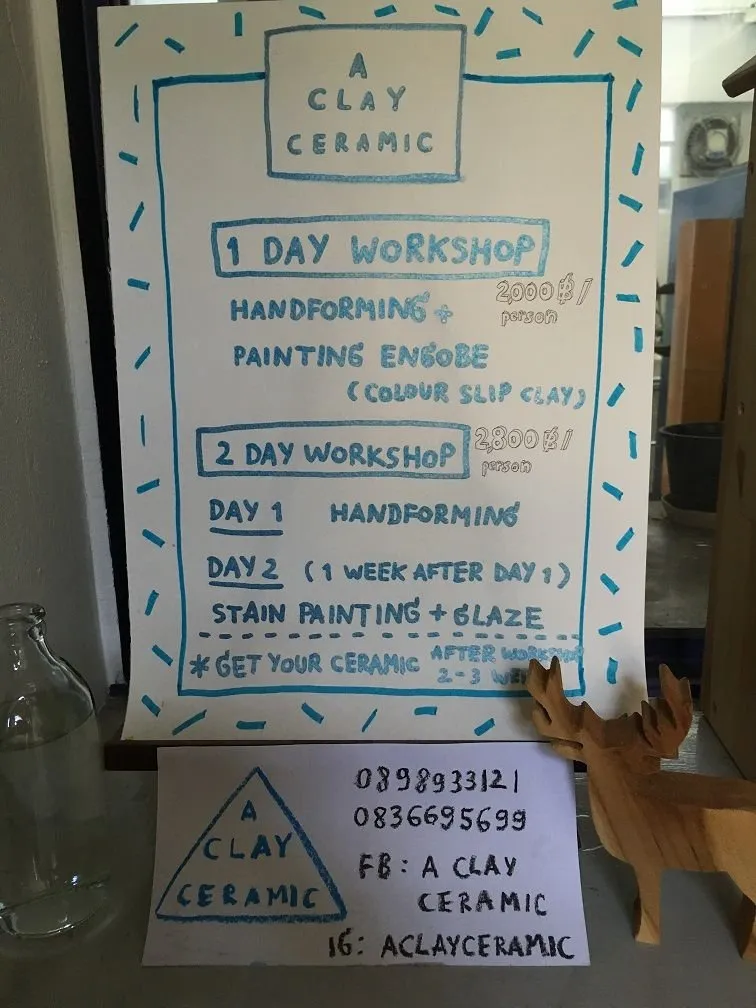 A
CLAY
CERAMIC
1 DAY WORKSHOP
2,000 ฿ /
person
HANDFORMING +
PAINTING ENGOBE
(COLOUR SLIP CLAY)
2 DAY WORKSHOP
2,800 ฿ /
person
DAY 1 HANDFORMING
DAY 2 (1 WEEK AFTER DAY 1)
STAIN PAINTING + GLAZE
* GET YOUR CERAMIC AFTER WORKSHOP
2-3
A
CLAY
CERAMIC
0898933121
0836695699
FB: A CLAY
CERAMIC
IG: ACLAYCERAMIC